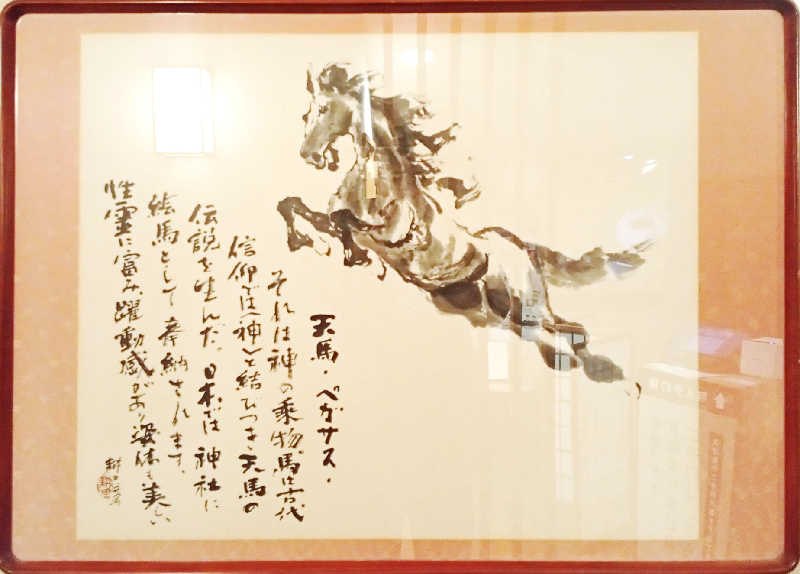 天馬・ペガサス・
それは神の乗物、馬は古代
信仰では〈神〉と結びつき天馬の
伝説を生んだ。日本では神社に
絵馬として奉納されます。
性霊に富み、躍動感があり姿体も美しい